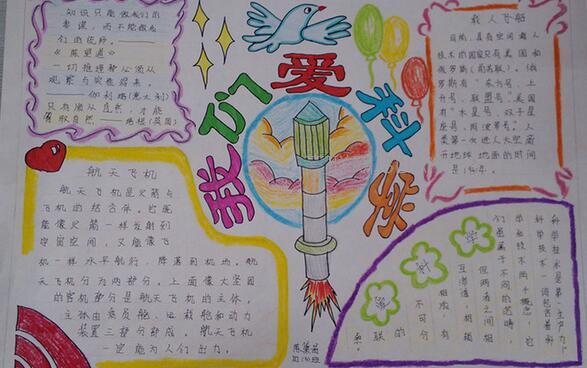 知识只能做我们的
参谋，而不能做我
们的
一切推理都必须从
观察与实验得来。
伽利略(意大利)
只有顺从自然，才能
自然
我们爱科学
载人飞船
目前，具有空间载人
技术的国家只有美国和
俄罗斯
罗斯有"东方号、上
升号、联盟号"，美国
有"水星号、双子星
座号、阿波罗号"。人
类第一次进入太空离
开地球 地面的时间
是1961年。
航天飞机
航天飞机是火箭与
飞机的结合体。它既
能像火箭一样发射到
宇宙空间，又能像飞
机一样水平航行，降落到机场。航
天飞机分为两部分。上面像大尾圆
的客机部分是航天飞机的主体，
主体由乘员舱、运载舱和动力
装置三部分组成。航天飞机
一定能为人们出力。
学科学
科学技术是第一生产力！
科学技术一词包含着科
学和技术两个概念，它
们虽属于不同的范畴，
但两者之间相
互渗透，相辅
相成，有
不可分
的联
系。